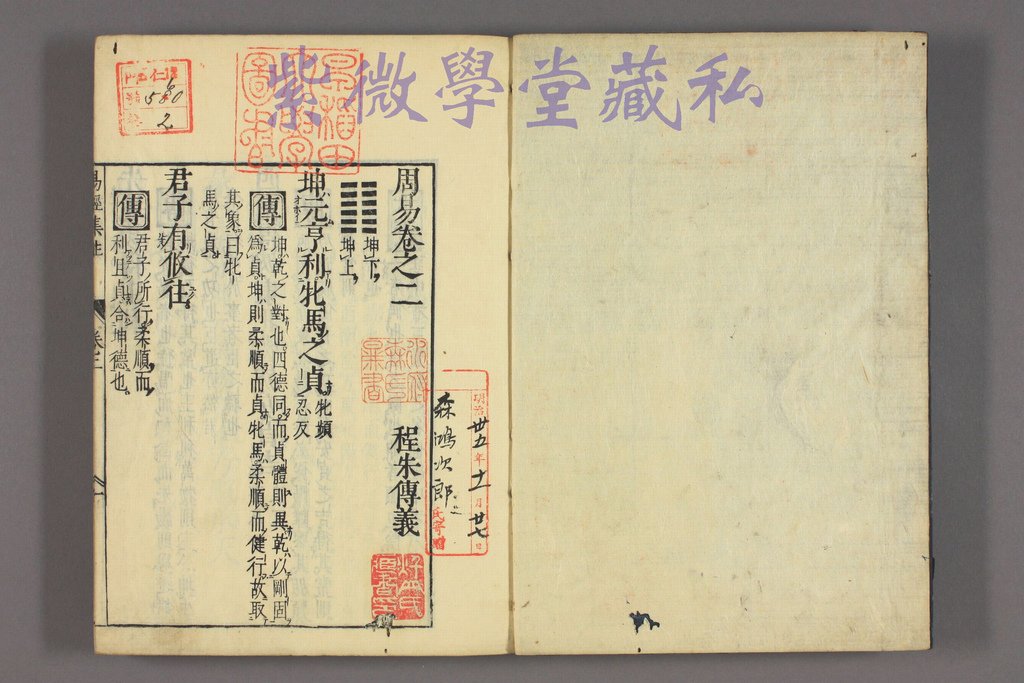 紫微學堂藏私
周易卷之二
程朱傳義
坤下
坤上
坤元亨利牝馬之貞
牝頻
忍反
傳
坤乾之對也四德同而貞體則異乾以剛固
爲貞坤則柔順而貞牝馬柔順而健行故取
其象曰牝
馬之貞
君子有攸往
傳
君子所行柔順而
利且貞合坤德也
易經集註
卷二
明治廿五年十一月廿七日
森鴻次郎
氏寄贈
580
2
早稻田大學圖書